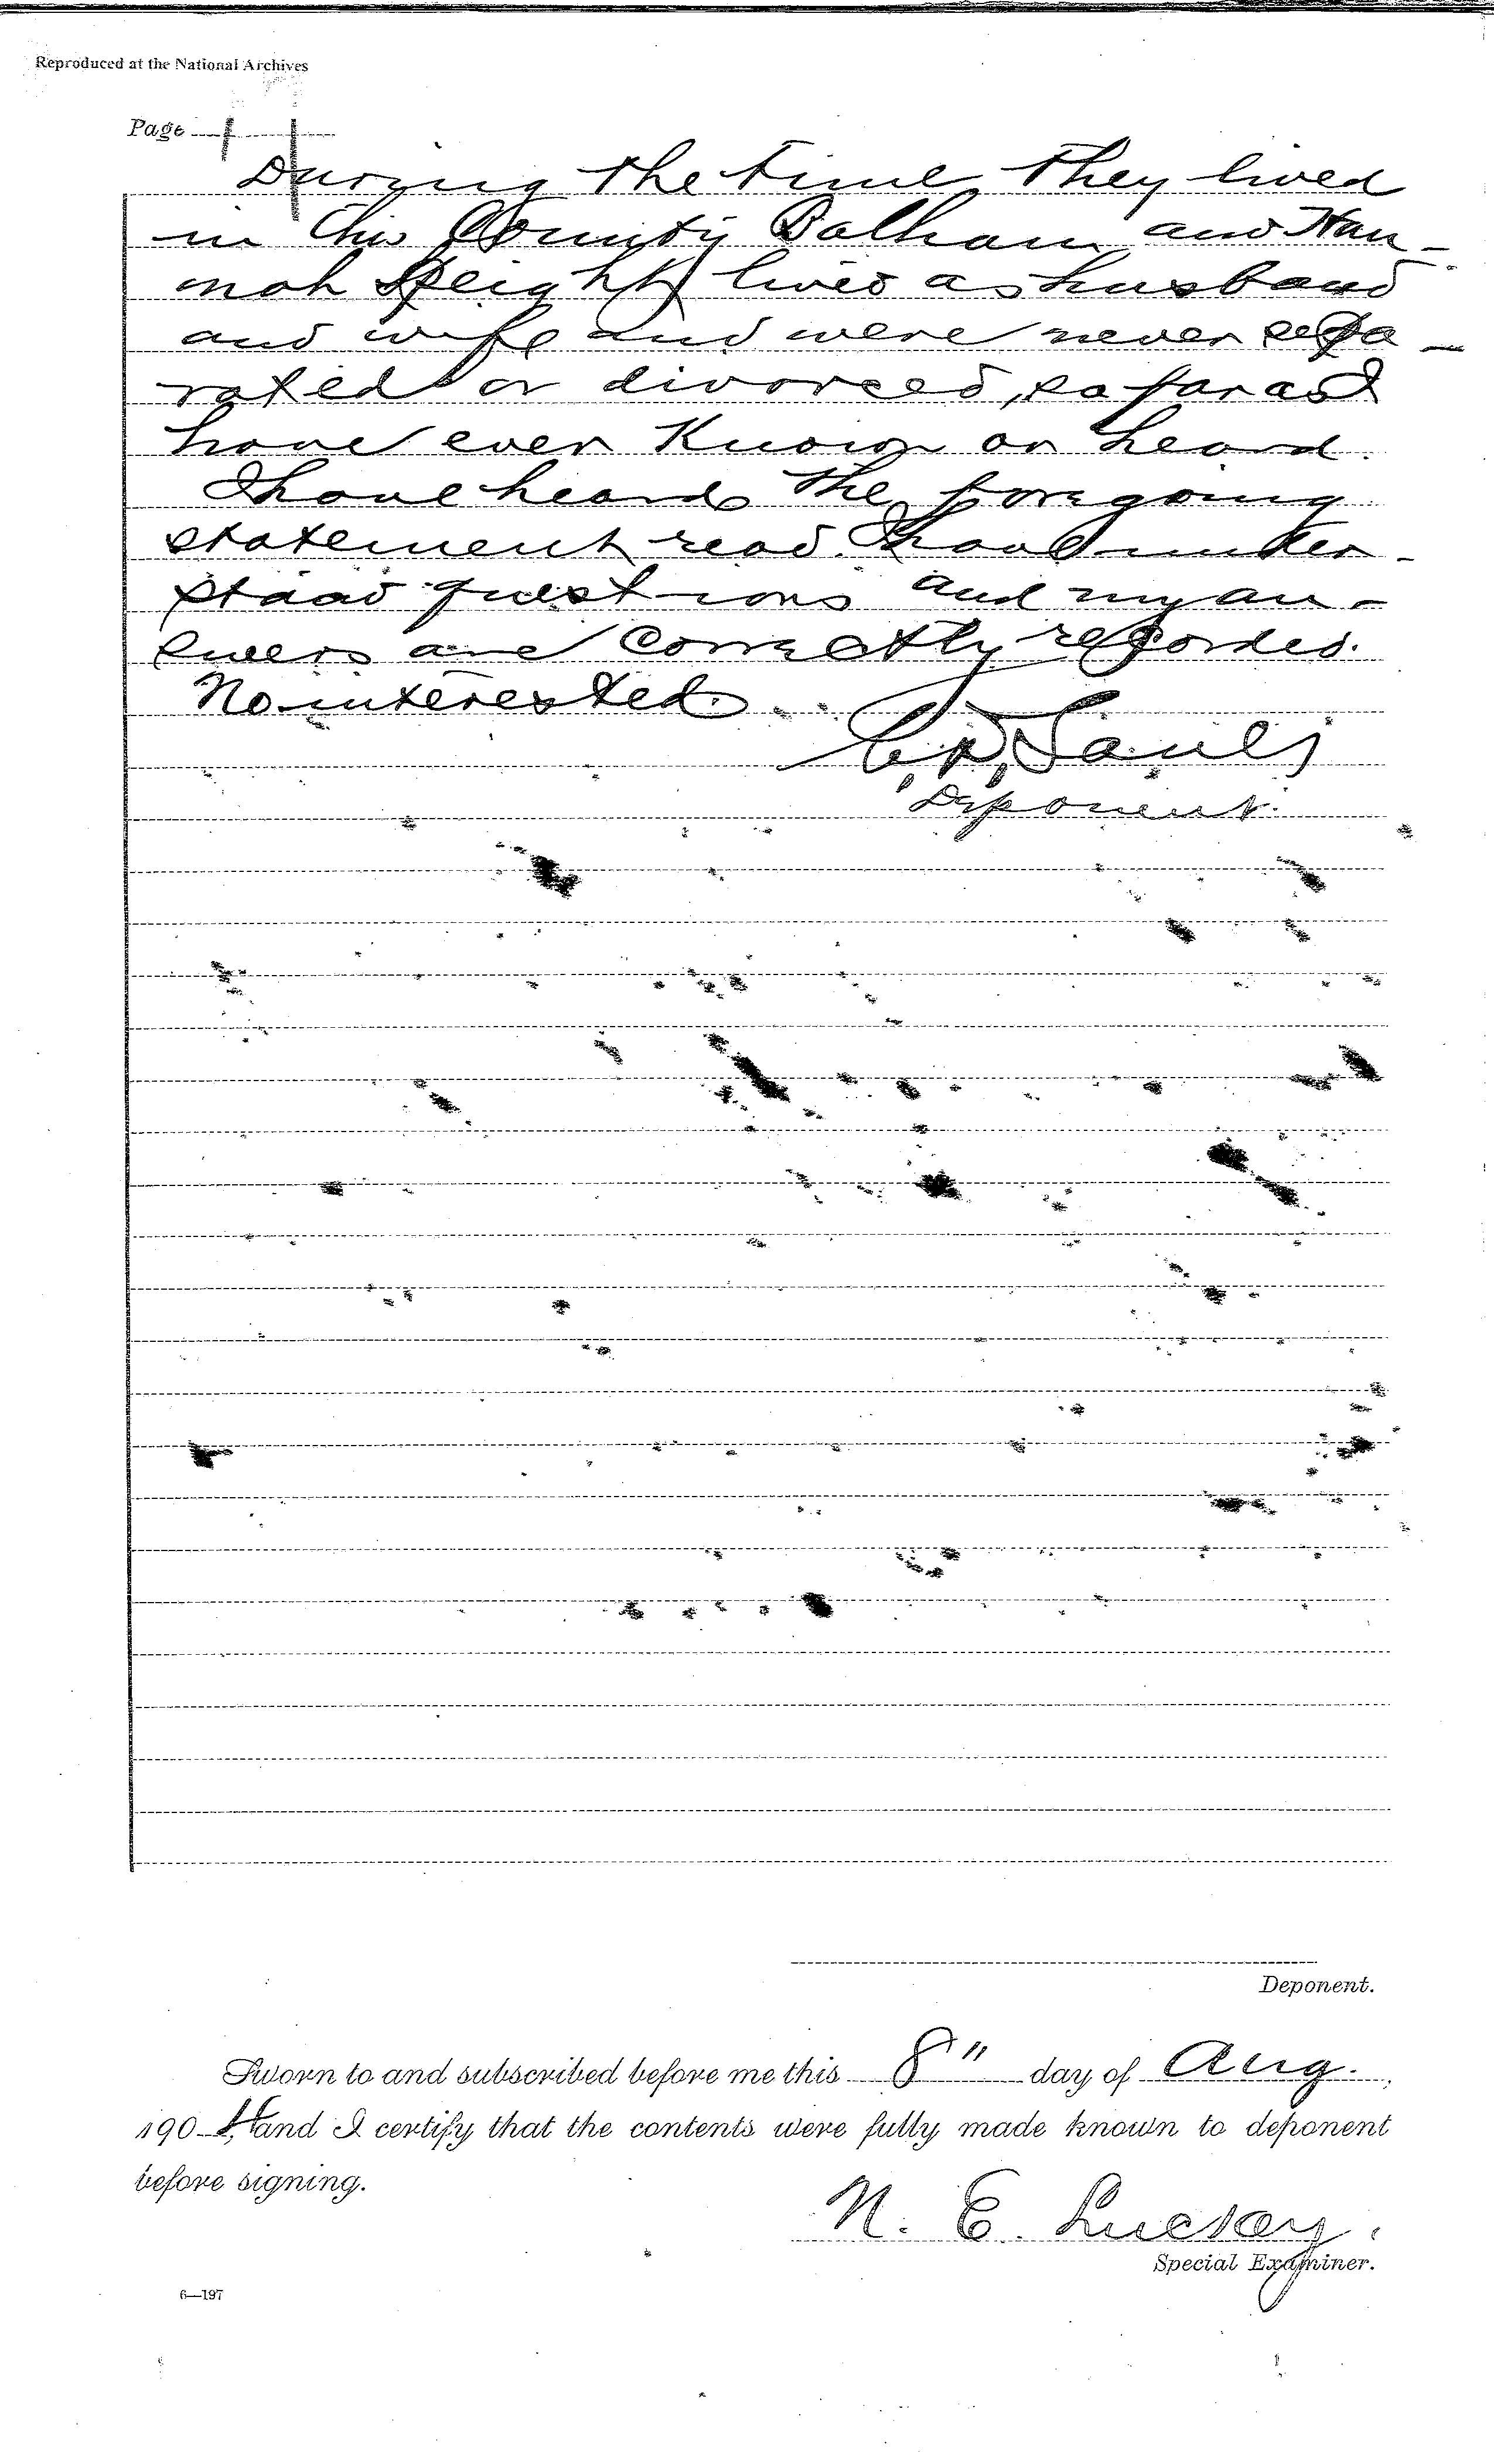 Reproduced at the National Archives
Page
During the time they lived
in this County Balham and Han-
nah Speight lived as husband
and wife and were never sepa-
rated or divorced, so far as I
have ever known or heard.
I have heard the foregoing
statement read. I have under-
stood questions and my an-
swers are correctly recorded.
No interested.
Sauls
Deponent.
Deponent.
Sworn to and subscribed before me this 8" day of Aug.,
190 and I certify that the contents were fully made known to deponent
before signing.
N. E.
Special Examiner.
6—197